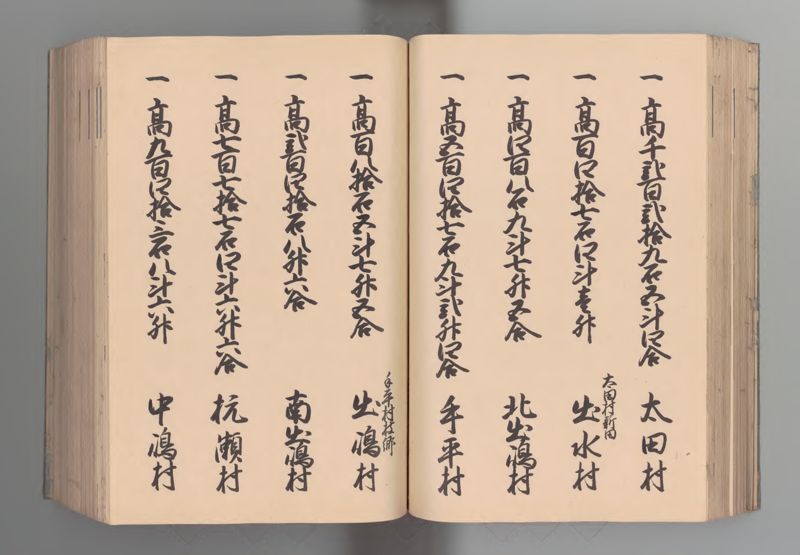 一 高千弐百弐拾九石五斗四合 太田村
一 高百四拾七石四斗壱升 太田村新田 出水村
一 高四百八石九斗七升五合 北出嶋村
一 高五百四拾七石九斗弐升四合 手平村
一 高百八拾石五斗七升五合 手平村枝郷 出嶋村
一 高弐百四拾石八升六合 南出嶋村
一 高七百七拾七石四斗六升六合 杭瀬村
一 高九百四拾三石八斗六升 中嶋村